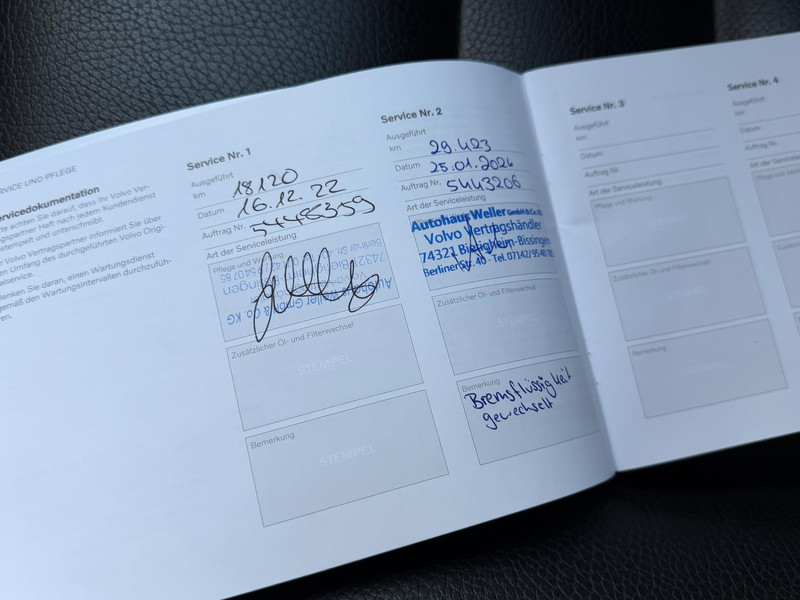 RVICE UND PFLEGE
rvicedokumentation
te achten Sie darauf, dass Ihr Volvo Ver-
gspartner Heft nach jedem Kundendienst
tempelt und unterschreibt.
r Volvo Vertragspartner informiert Sie über
en Umfang des durchgeführten Volvo Origi-
alservice.
enken Sie daran, einen Wartungsdienst
emäß den Wartungsintervallen durchzufüh-
ren.
Service Nr. 1
Ausgeführt
km 18120
Datum 16.12.22
Auftrag Nr. 54485359
Art der Serviceleistung
Pflege und
Autohaus Weller GmbH & Co. KG
74321
Berliner Str. 40
Zusätzlicher Öl- und Filterwechsel
STEMPEL
Bemerkung
STEMPEL
Service Nr. 2
Ausgeführt
km 29.423
Datum 25.01.2024
Auftrag Nr. 5443206
Art der Serviceleistung
Autohaus Weller GmbH & Co. KG
Volvo Vertragshändler
74321 Bietigheim-Bissingen
Berliner Str. 40 - Tel. 07142/9540
Zusätzlicher Öl- und Filterwechsel
STEMPEL
Bemerkung
Bremsflüssigkeit
gewechselt
Service Nr. 3
Ausgeführt
km
Datum
Auftrag Nr.
Art der Serviceleistung
Pflege und Wartung
Zusätzlicher Öl- und Filterwechsel
Bemerkung
STEMPEL
Service Nr. 4
Ausgeführt
km
Datum
Auftrag Nr.
Art der Serviceleistung